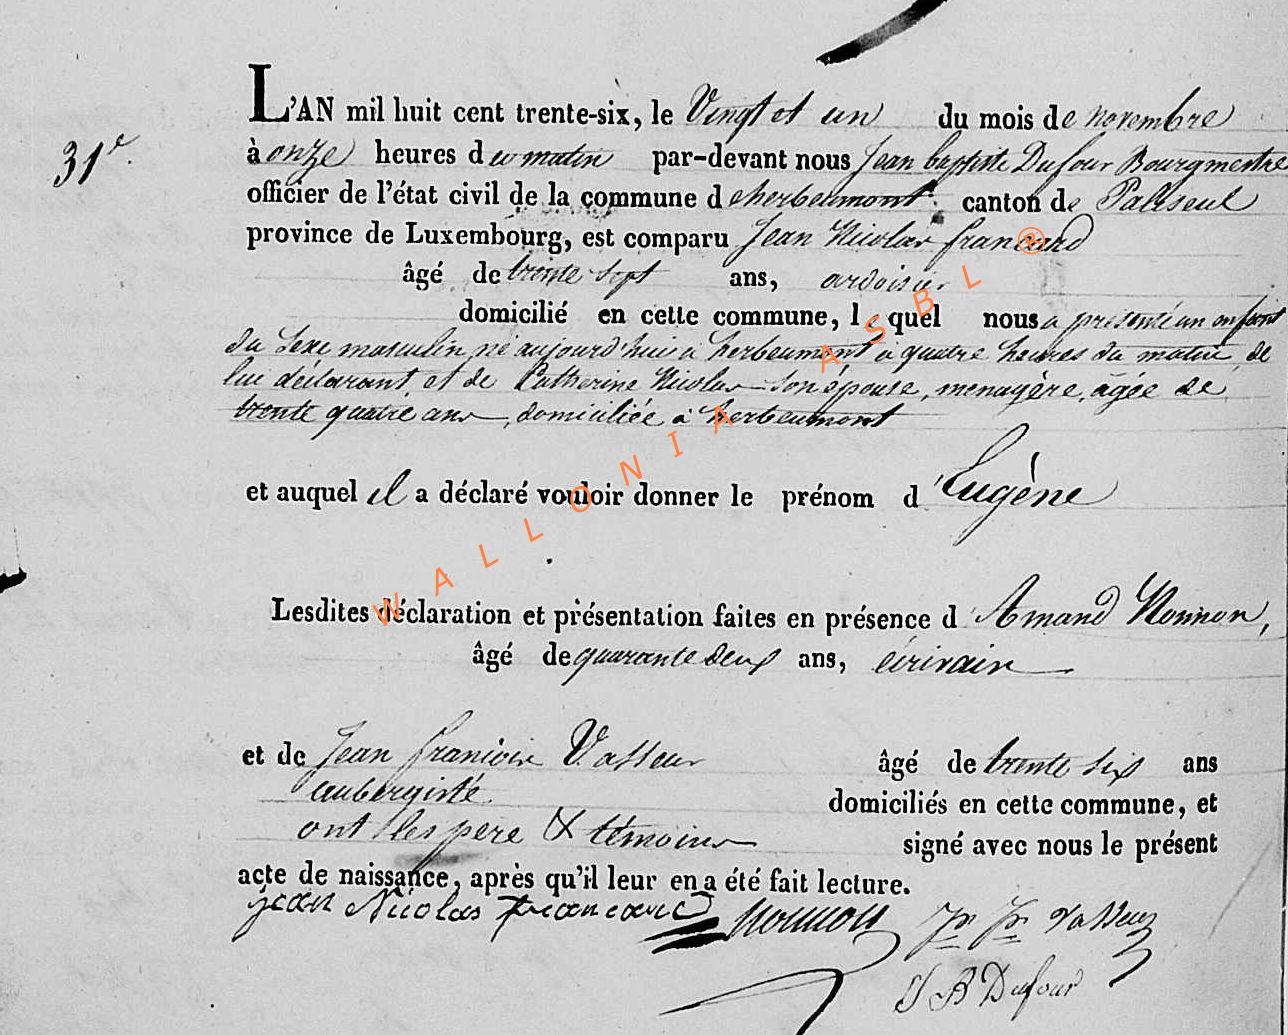 L'AN mil huit cent trente-six, le Vingt et un du mois de novembre
31e.
à onze heures du matin par-devant nous Jean baptiste Dufour Bourgmestre
officier de l'état civil de la commune d'herbeumont canton de Paliseul
province de Luxembourg, est comparu Jean Nicolas francard
âgé de trente sept ans, ardoisier
domicilié en cette commune, lequel nous a presenté un enfant
du sexe masculin, né aujourd'hui a herbeumont à quatre heures du matin, de
lui déclarant, et de Catherine Nicolas son épouse, menagère, agée de
trente quatre ans, domiciliée à herbeumont
et auquel il a déclaré vouloir donner le prénom d'Eugène
Lesdites déclaration et présentation faites en présence d'Amand Nonnon,
âgé de quarante deux ans, écrivain
et de Jean françois Vasseur âgé de trente six ans
aubergiste domiciliés en cette commune, et
ont les père & témoins signé avec nous le présent
acte de naissance, après qu'il leur en a été fait lecture.
jean Nicolas francard Nonnon Jn Fs Vasseur
J B Dufour
WALLONIA ASBL ®